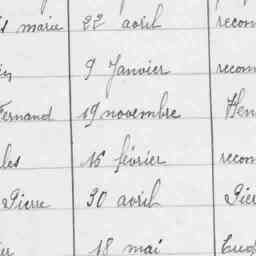 marie 22 avril recom
9 Janvier recom
Fernand 19 novembre Hen
les 16 février recom
Pierre 30 avril Pier
18 mai